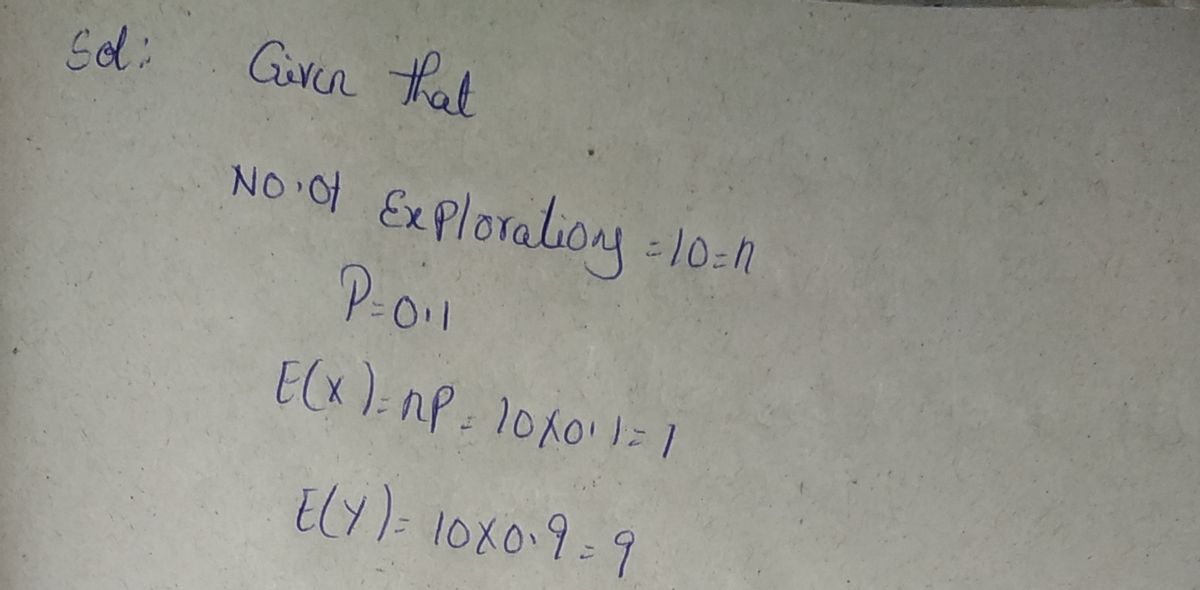 Sol: Given that
No. of Explorations = 10 = n
P = 0.1
E(x) = np = 10 x 0.1 = 1
E(Y) = 10 x 0.9 = 9